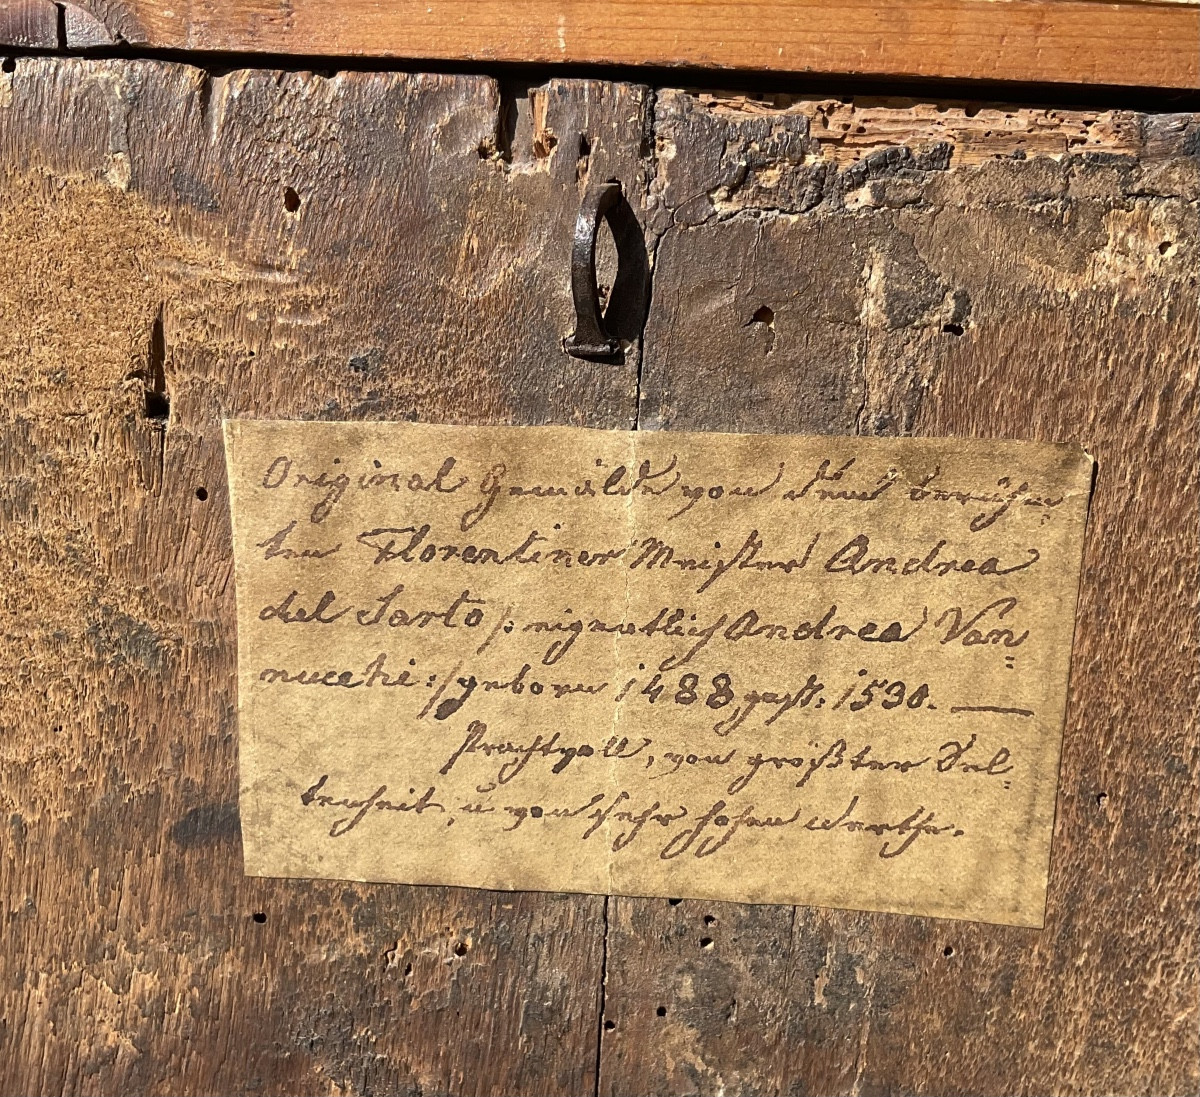 Original Gemälde von dem berühm=
ten Florentiner Meister Andrea
del Sarto /: eigentlich Andrea Van=
nucchi :/ geboren 1488, gest: 1530. —
Prachtvoll, von größter Sel=
tenheit, u. von sehr hohen Werthe.